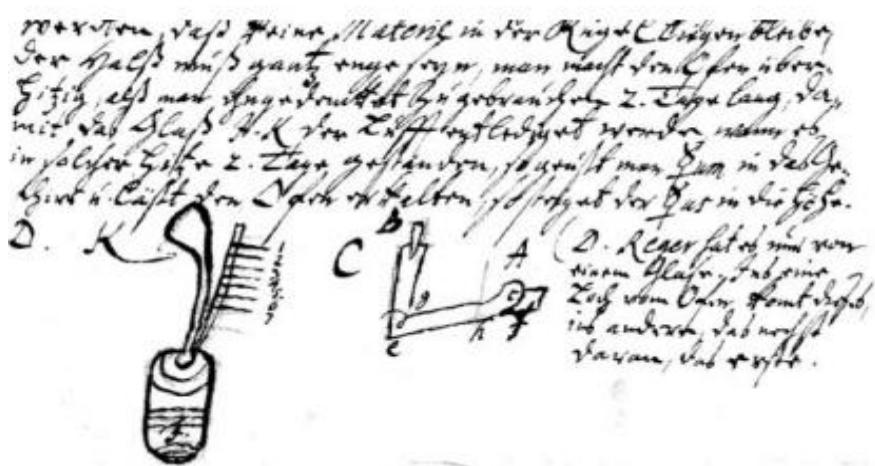 werden, daß keine Materie in der Kugel C übrigen bleibe,
der Halß muß gantz enge seyn, man macht den Ofen über-
hitzig, alß man zu gebrauchen 2. Tage lang, da-
mit das Glaß A. K der Lufft entlediget werde, wann es
in solcher Hitze 2. Tage gestanden, so geußt man ☿um in das Ge-
u. läßt den Ofen erkalten, so steiget der ☿us in die Höhe.
D. K
C B A
g
e h f
D. Reger hat es nur von
einem Glase, eine
Loch vom Ofen, kömt
ins andere, das nechst
daran, das erste.